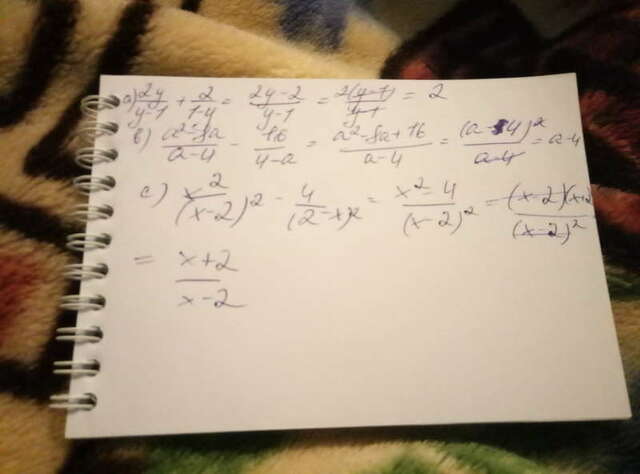 a) 2y/y-1 + 2/1-y = 2y-2/y-1 = 2(y-1)/y-1 = 2
b) a²-8a/a-4 - 16/4-a = a²-8a+16/a-4 = (a-4)²/a-4 = a-4
c) x²/(x-2)² - 4/(2-x)² = x²-4/(x-2)² = (x-2)(x+2/(x-2)²
= x+2/x-2